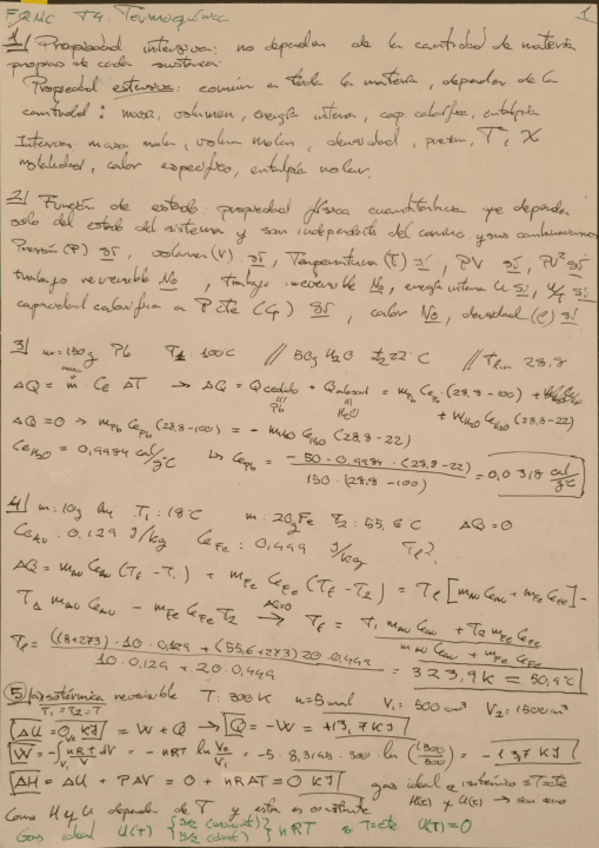 FQNC T4: Termoquímica 1
1/ Propiedad intensiva: no depender de la cantidad de materia
propias de cada sustancia.
Propiedad extensiva: común a toda la materia, depender de la
cantidad: masa, volumen, energía interna, cap. calorífica, entalpía
Intensiva: masa molar, volumen molar, densidad, presión, T, X
molalidad, calor específico, entalpía molar.
2/ Función de estado: propiedad física cuantitativa que depende
solo del estado del sistema y son independiente del camino y sus combinaciones
Presión (P) sí, volumen (V) sí, Temperatura (T) sí, PV sí, PV² sí
trabajo reversible No, trabajo irreversible No, energía interna U sí, U/T sí
capacidad calorífica a P cte (Cp) sí, calor No, densidad (ρ) sí
3/ m=150g Pb T1: 100°C // 50g H2O t2 22°C // Tfin 28,8
ΔQ = m · Ce ΔT → ΔQ = Qcedido + Qabsorb = mPb CePb · (28,8-100) +
Pb H2O + mH2O CeH2O (28,8-22)
ΔQ=0 → mPb CePb (28,8-100) = - mH2O CeH2O (28,8-22)
CeH2O = 0,9984 cal/g°C ↳ CePb = -50 · 0,9984 · (28,8-22) / 150 · (28,8-100) = 0,0318 cal/g°C
4/ m: 10g Au T1: 18°C m: 20g Fe T2: 55,6°C ΔQ=0
CeAu: 0,129 J/kg CeFe: 0,449 J/kg Tf?
ΔQ = mAu CeAu (Tf - T1) + mFe CeFe (Tf - T2) = Tf [mAu CeAu + mFe CeFe] -
T1 mAu CeAu - mFe CeFe T2 →(ΔQ=0) Tf = T1 mAu CeAu + T2 mFe CeFe / mAu CeAu + mFe CeFe
Tf = (18+273) · 10 · 0,129 + (55,6+273) 20 · 0,449 / 10 · 0,129 + 20 · 0,449 = 323,9K = 50,9°C
5/ (a) isotérmica reversible T: 300K n=5mol V1 = 500cm³ V2 = 1500cm³
T1=T2=T
ΔU = 0 kJ = W + Q → Q = -W = +13,7 kJ
W = -∫ nRT/V dV = - nRT ln V2/V1 = -5 · 8,3145 · 300 · ln (1500/500) = -13,7 kJ
ΔH = ΔU + PΔV = 0 + nRΔT = 0 kJ gas ideal e isotérmico = T cte
Como H y U depender de T y esta es constante H(t) y U(t) → son cero
Gas ideal U(T) {3/2 (monoat) 5/2 (diat)} nRT T=cte U(T)=0